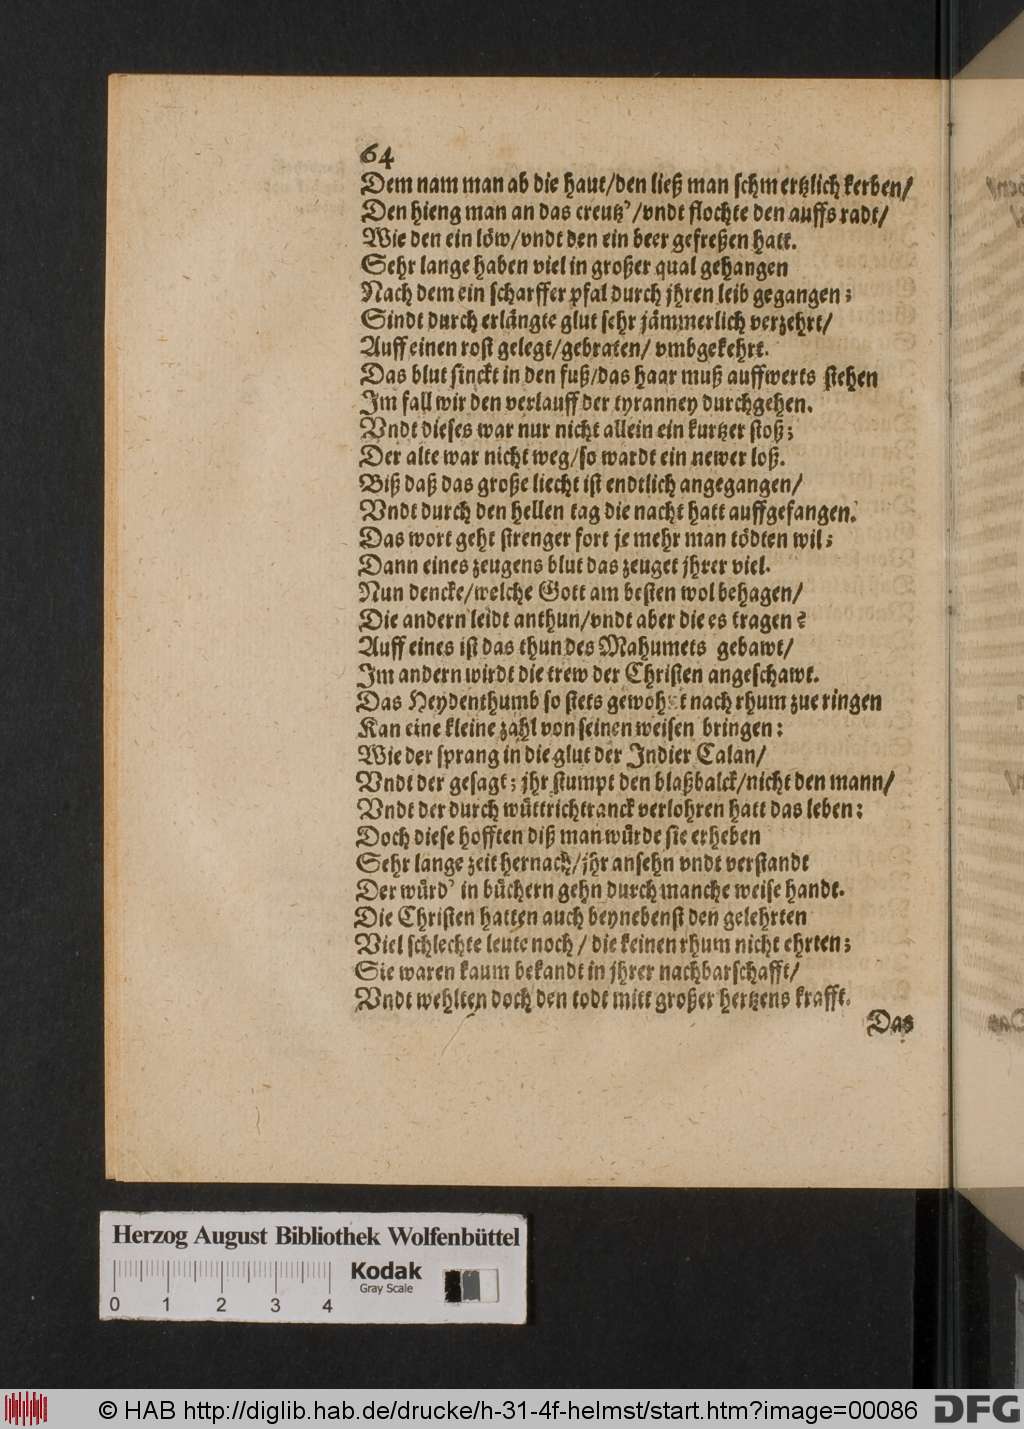 64
Dem nam man ab die haut/den ließ man schmertzlich kerben/
Den hieng man an das creutz’/vndt flochte den auffs radt/
Wie den ein löw/vndt den ein beer gefreßen hatt.
Sehr lange haben viel in großer qual gehangen
Nach dem ein scharffer pfal durch jhren leib gegangen;
Sindt durch erlängte glut sehr jämmerlich verzehrt/
Auff einen rost gelegt/gebraten/ vmbgekehrt.
Das blut sinckt in den fuß/das haar muß auffwerts stehen
Im fall wir den verlauff der tyranney durchgehen.
Vndt dieses war nur nicht allein ein kurtzer stoß;
Der alte war nicht weg/so wardt ein newer loß.
Biß daß das große liecht ist endtlich angegangen/
Vndt durch den hellen tag die nacht hatt auffgefangen.
Das wort geht strenger fort je mehr man tödten wil;
Dann eines zeugens blut das zeuget jhrer viel.
Nun dencke/welche Gott am besten wol behagen/
Die andern leidt anthun/vndt aber die es tragen?
Auff eines ist das thun des Mahumets gebawt/
Im andern wirdt die trew der Christen angeschawt.
Das Heydenthumb so stets gewohnt nach rhum zue ringen
Kan eine kleine zahl von seinen weisen bringen:
Wie der sprang in die glut der Indier Calan/
Vndt der gesagt; jhr stumpt den blaßbalck/nicht den mann/
Vndt der durch wüttrichtranck verlohren hatt das leben;
Doch diese hofften diß man würde sie erheben
Sehr lange zeit hernach/jhr ansehn vndt verstandt
Der würd’ in büchern gehn durch manche weise handt.
Die Christen hatten auch beynebenst den gelehrten
Viel schlechte leute noch / die keinen rhum nicht ehrten;
Sie waren kaum bekandt in jhrer nachbarschafft/
Vndt wehlten doch den todt mitt großer hertzens krafft.
Das
Herzog August Bibliothek Wolfenbüttel
Kodak
Gray Scale
0 1 2 3 4
© HAB http://diglib.hab.de/drucke/h-31-4f-helmst/start.htm?image=00086
DFG